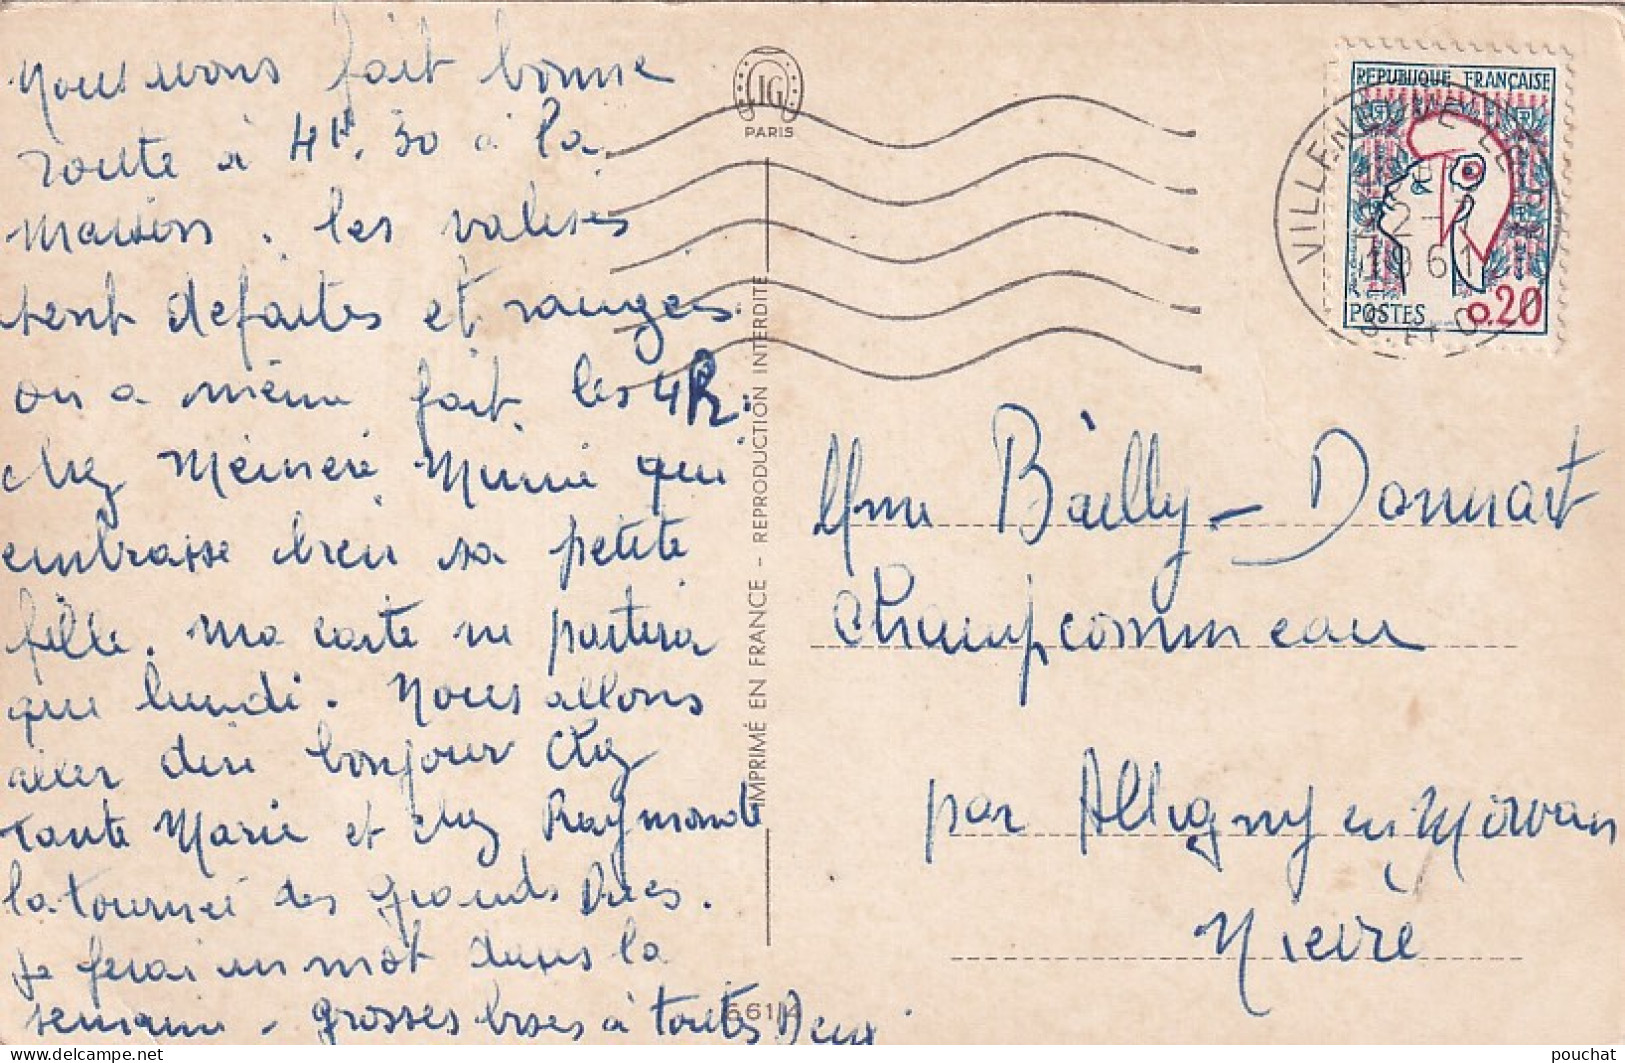 Nous avons fait bonne
route à 4H.30 à la
maison. les valises
sont defaites et rangés.
on a même fait les 4R.
chez Mémère Mimie qui
embrasse bien sa petite
fille. Ma carte ne partira
que lundi. Nous allons
aller dire bonjour chez
Tante Marie et chez Raymonde
la tournée des grands Ducs.
je ferai un mot dans la
semaine - grosses bises à toutes Deux
JG
PARIS
IMPRIMÉ EN FRANCE - REPRODUCTION INTERDITE
661/4
REPUBLIQUE FRANÇAISE
POSTES 0.20
VILLENEUVE-LE
2-7
1961
S. ET O.
Mme Bailly - Donnart
Champcommeau
par Alligny en Morvan
Nièvre
pouchat
www.delcampe.net